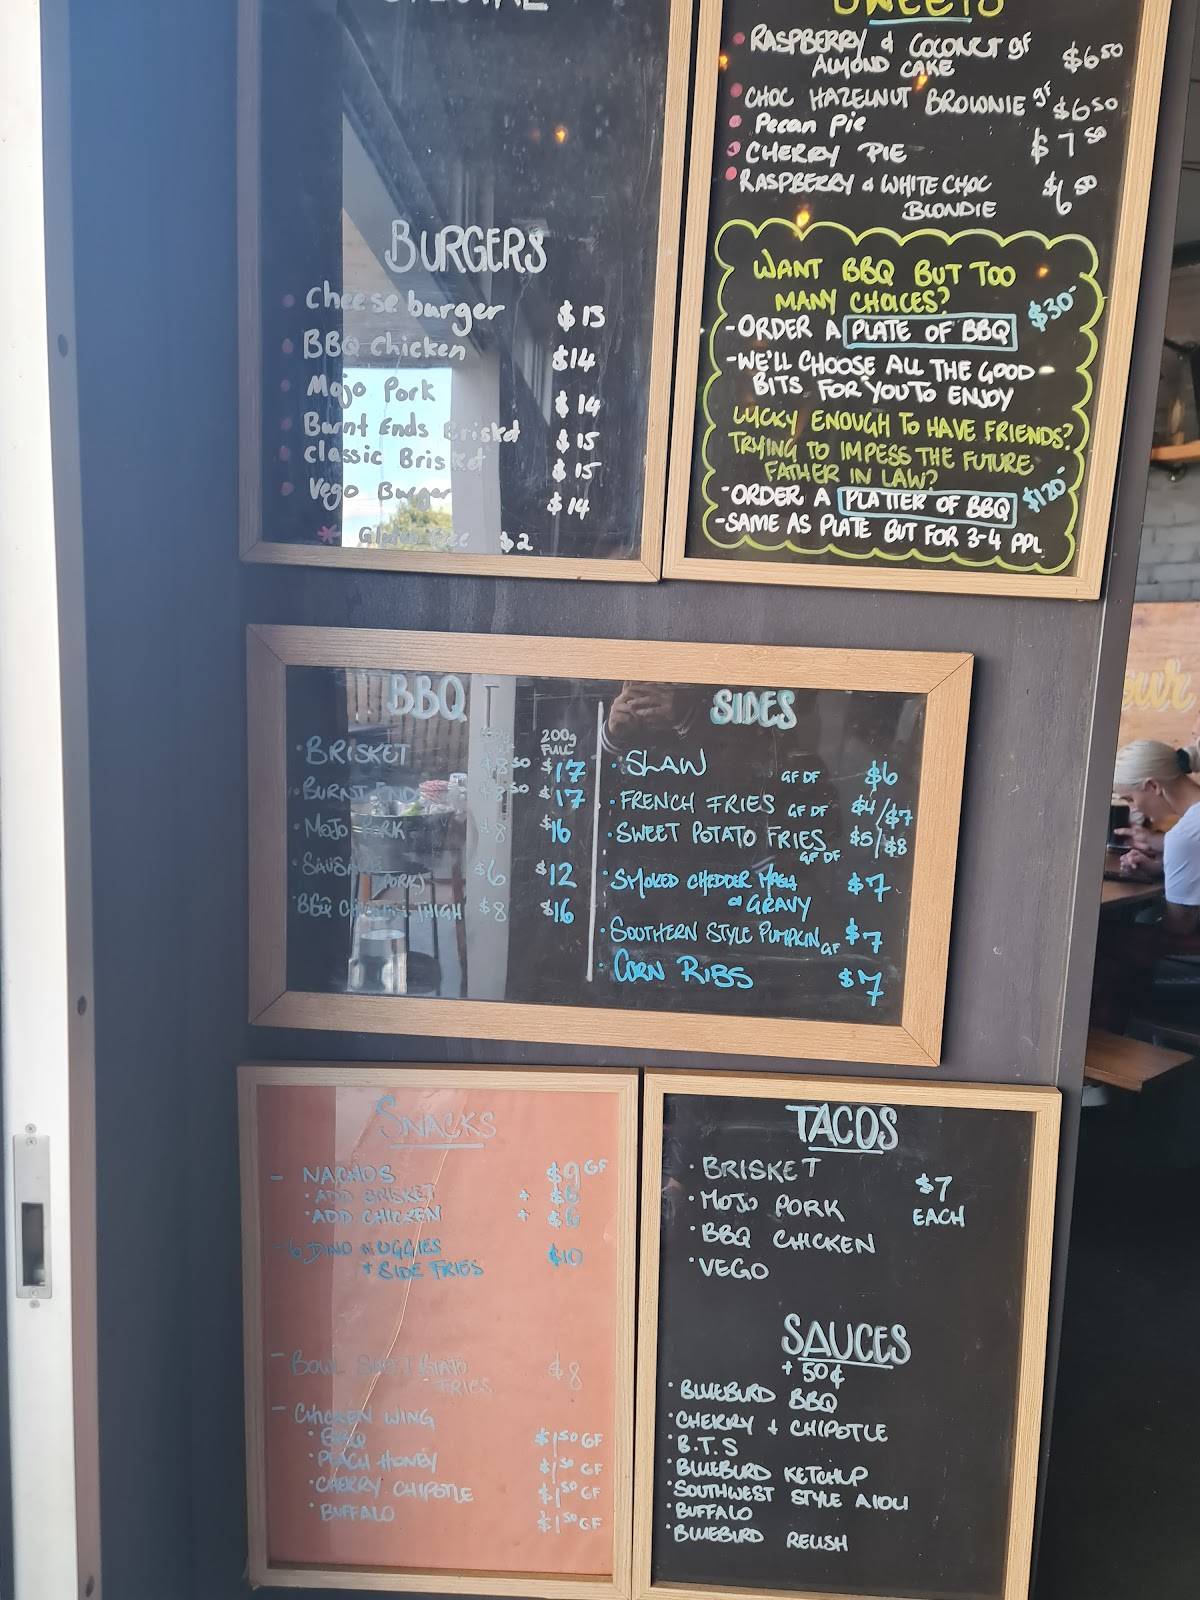 BURGERS
Cheeseburger $15
BBQ Chicken $14
Mojo Pork $14
Burnt Ends Brisket $15
Classic Brisket $15
Vego Burger $14
* Gluten Free $2
SWEETS
RASPBERRY & COCONUT gf $6.50
ALMOND CAKE
CHOC HAZELNUT BROWNIE gf $6.50
Pecan Pie
CHERRY PIE $7.50
RASPBERRY & WHITE CHOC $6.50
BLONDIE
WANT BBQ BUT TOO
MANY CHOICES? $30-
-ORDER A PLATE OF BBQ
-WE'LL CHOOSE ALL THE GOOD
BITS FOR YOU TO ENJOY
LUCKY ENOUGH TO HAVE FRIENDS?
TRYING TO IMPESS THE FUTURE
FATHER IN LAW? $120-
-ORDER A PLATTER OF BBQ
-SAME AS PLATE BUT FOR 3-4 PPL
BBQ
200g
FULL
BRISKET $8.50 $17
BURNT ENDS $8.50 $17
MOJO PORK $8 $16
SAUSAGE $6 $12
(PORK)
BBQ CHICKEN THIGH $8 $16
SIDES
SLAW GF DF $6
FRENCH FRIES GF DF $4/$7
SWEET POTATO FRIES $5/$8
GF DF
SMOKED CHEDDER MAC $7
GRAVY
SOUTHERN STYLE PUMPKIN GF $7
CORN RIBS $7
SNACKS
- NACHOS $9 GF
ADD BRISKET + $6
ADD CHICKEN + $6
- 6 DINO NUGGIES $10
+ SIDE FRIES
- BOWL SWEET POTATO $8
FRIES
- CHICKEN WING
BBQ $1.50 GF
PEACH HONEY $1.50 GF
CHERRY CHIPOTLE $1.50 GF
BUFFALO $1.50 GF
TACOS
BRISKET
MOJO PORK $7
EACH
BBQ CHICKEN
VEGO
SAUCES
+ 50¢
BLUEBIRD BBQ
CHERRY + CHIPOTLE
B.T.S
BLUEBIRD KETCHUP
SOUTHWEST STYLE AIOLI
BUFFALO
BLUEBIRD RELISH